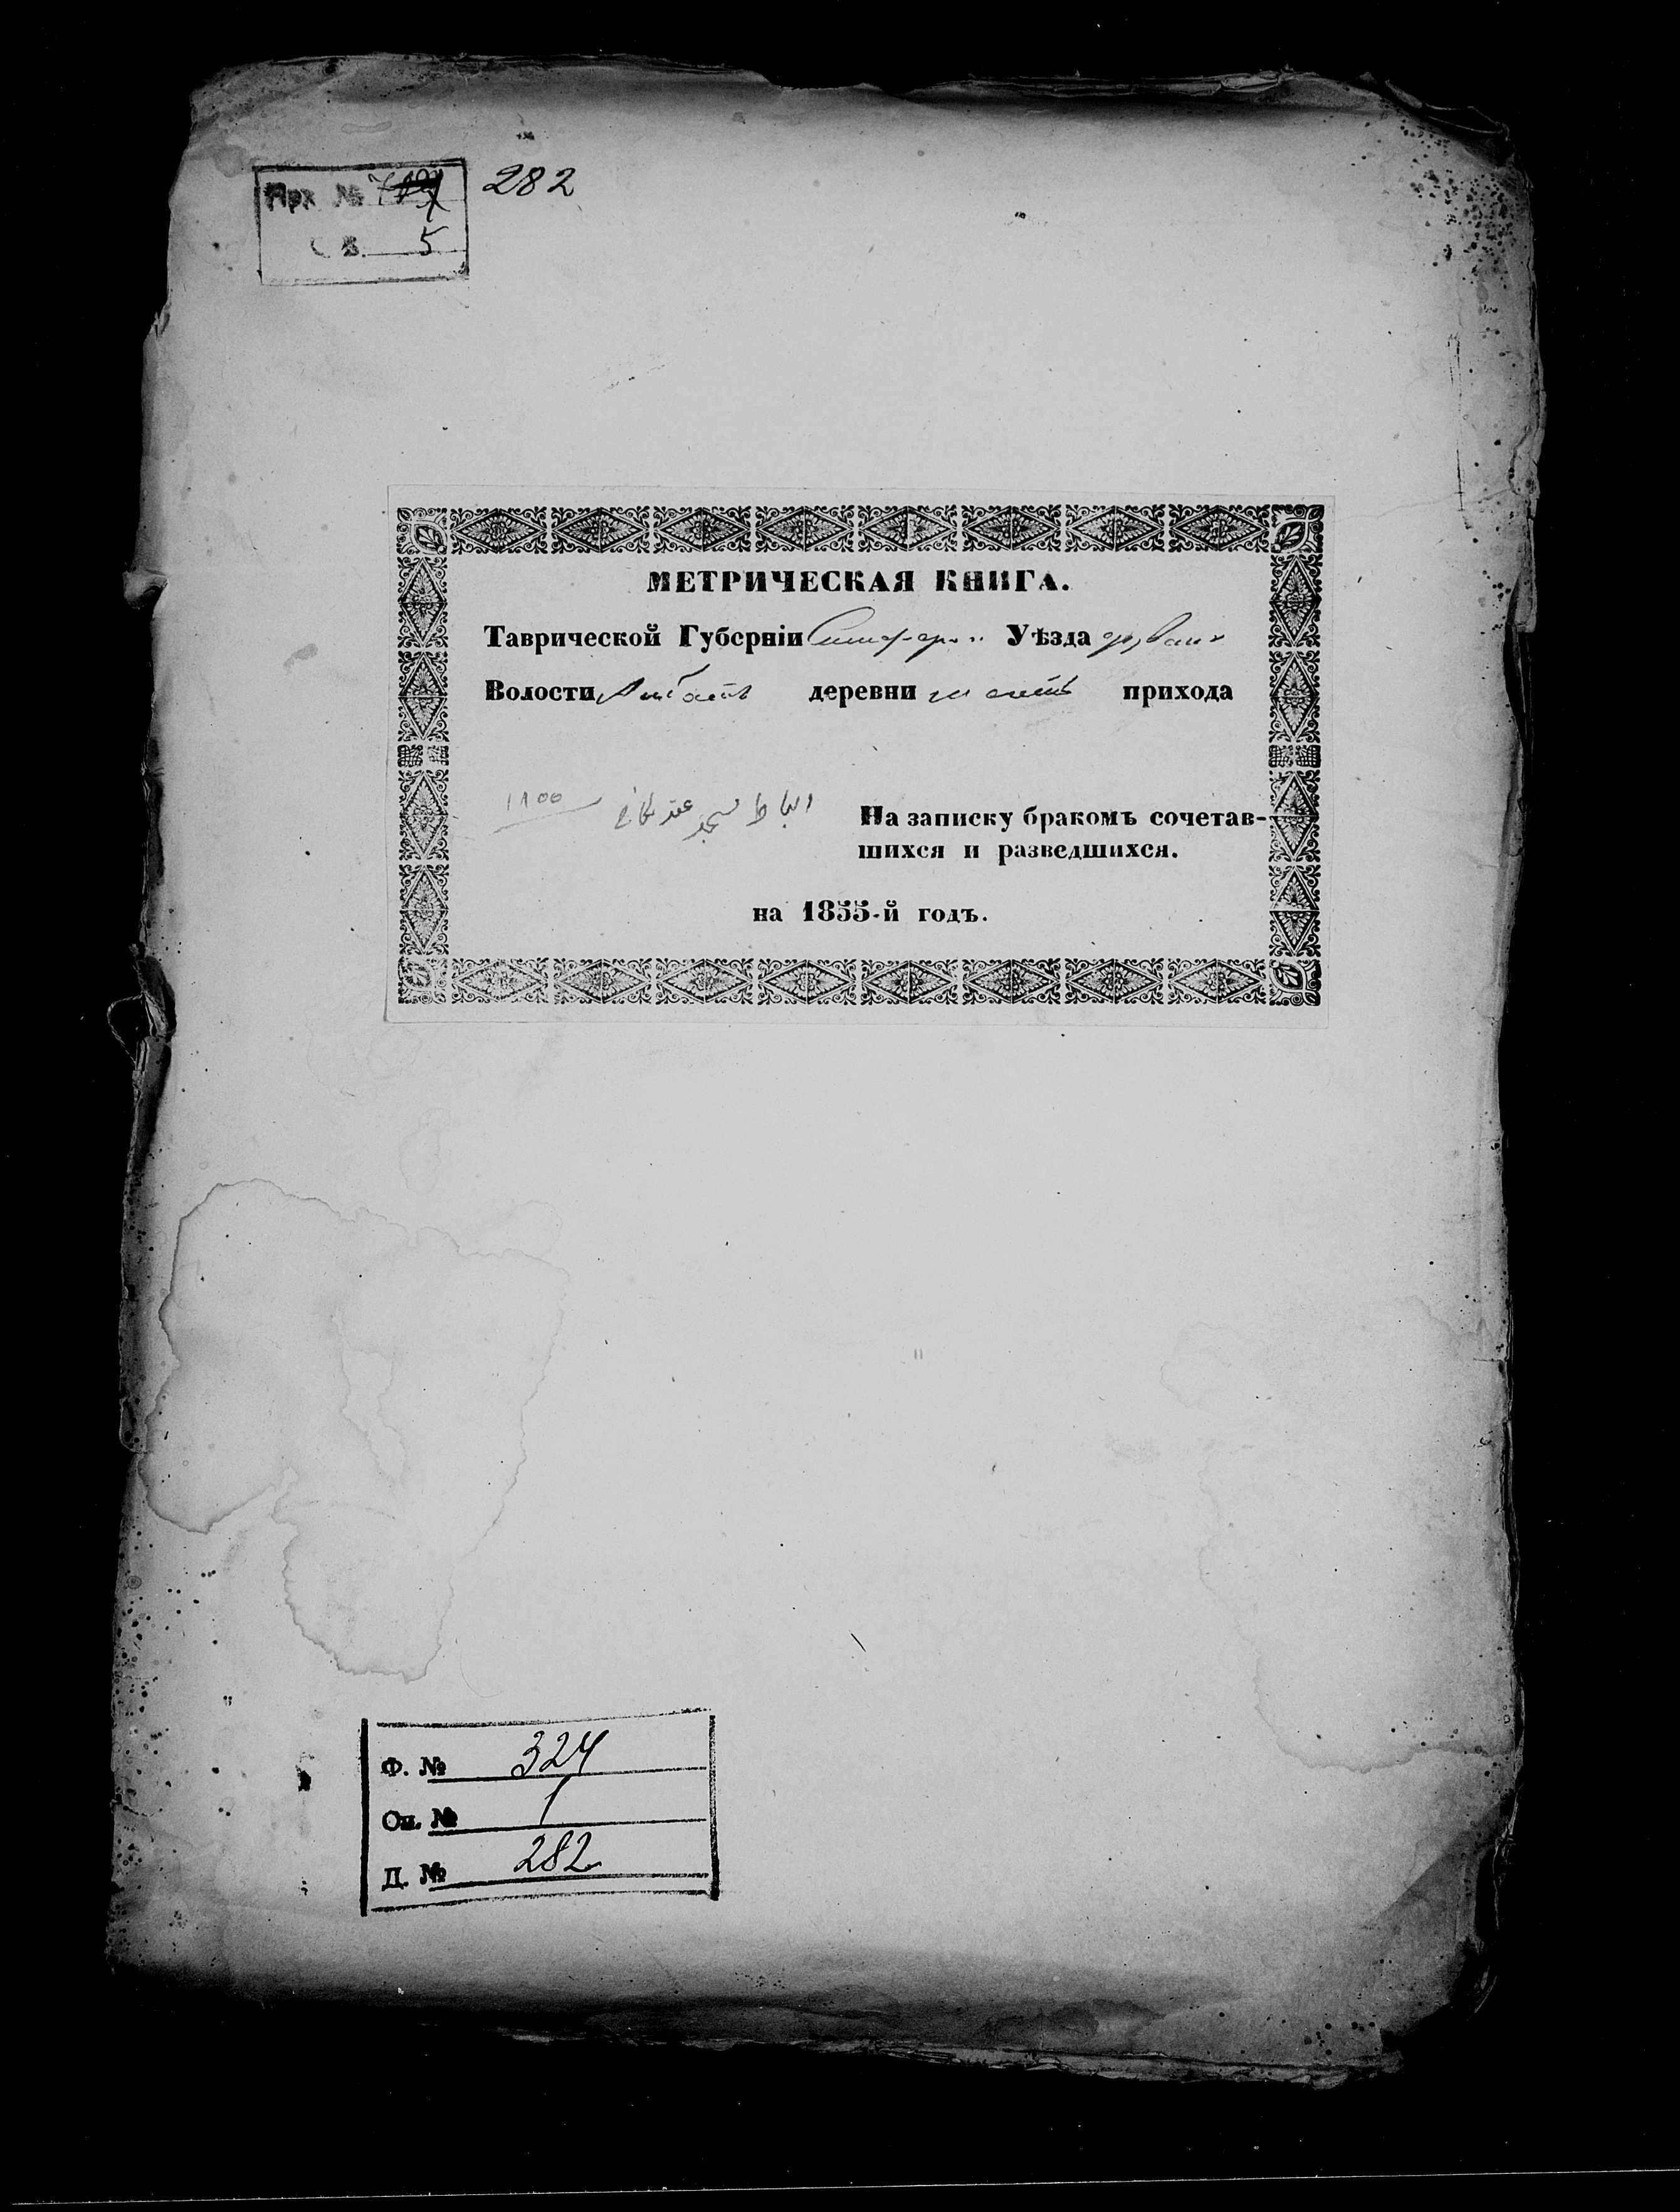 Арх № 282
С В. 5
МЕТРИЧЕСКАЯ КНИГА.
Таврической Губерніи Уѣзда
Волости деревни прихода
١٨٥٥
На записку бракомъ сочетав-
шихся и разведшихся.
на 1855-й годъ.
Ф. № 324
Оп. № 1
Д. № 282